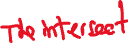 The intersect